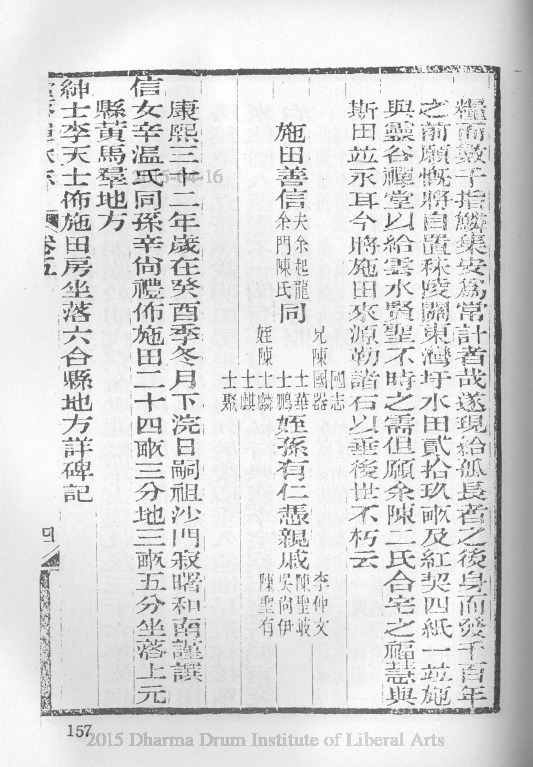 糧兩數千指鱗集安爲常計者哉遂現給孤長者之後身而發千百年
之前願慨將自置秣陵關東灣圩水田貳拾玖畝及紅契四紙一並施
與靈谷禪堂以給雲水賢聖不時之需但願余陳二氏合宅之福慧與
斯田並永耳今將施田來源勒諸石以垂後世不朽云
施田善信夫余起龍余門陳氏同兄陳國志國器姪陳士華士鵬士麟士麒士聚姪孫有仁憑親戚李仲文陳聖岐吳尚伊陳聖有
康熙三十二年歲在癸酉季冬月下浣日嗣祖沙門寂曙和南謹譔
信女辛溫氏同孫辛尚禮佈施田二十四畝三分地三畝五分坐落上元
縣黃馬羣地方
紳士李天士佈施田房坐落六合縣地方詳碑記
卷五
四
157
2015-04-16
2015 Dharma Drum Institute of Liberal Arts